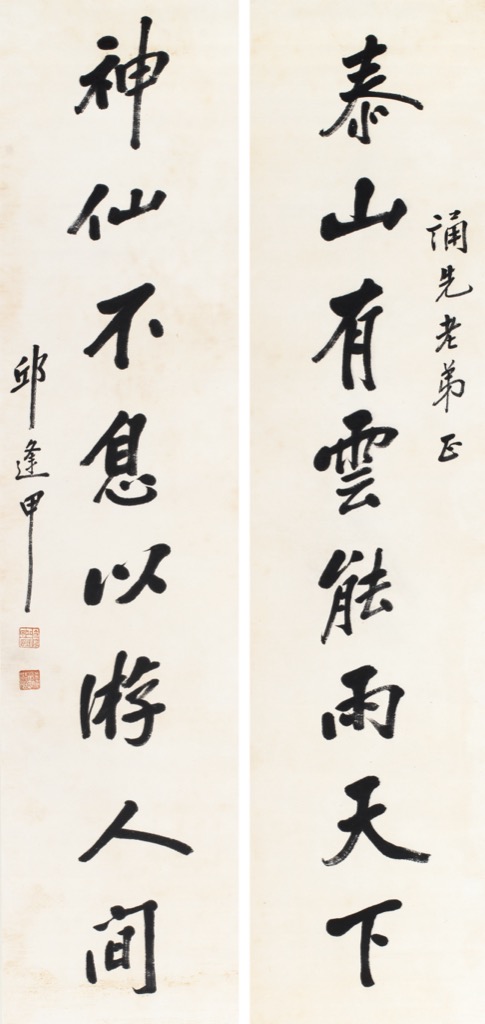 誦先老弟正
泰山有雲能雨天下
神仙不息以游人間
邱逢甲